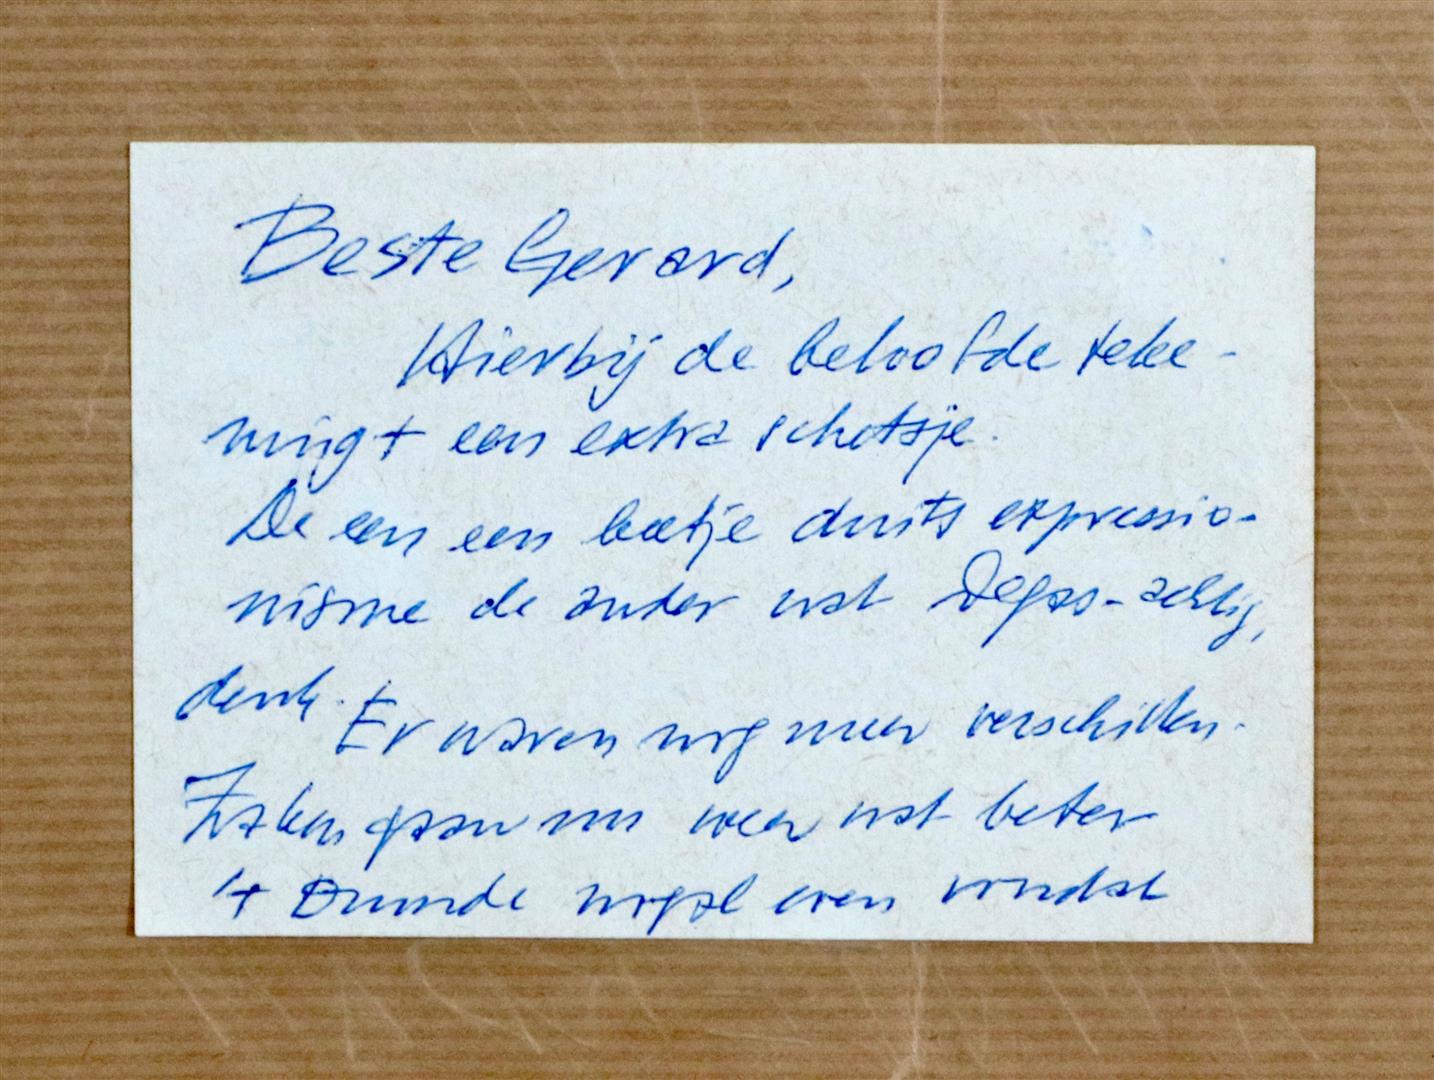 Beste Gerard,
Hierbij de beloofde teke-
ning + een extra schetsje.
De een een beetje duits expressio-
nisme de ander wat Degas-achtig,
denk.
Er waren nog meer verschillen.
Zaken gaan nu weer wat beter
't duurde nogal even voordat